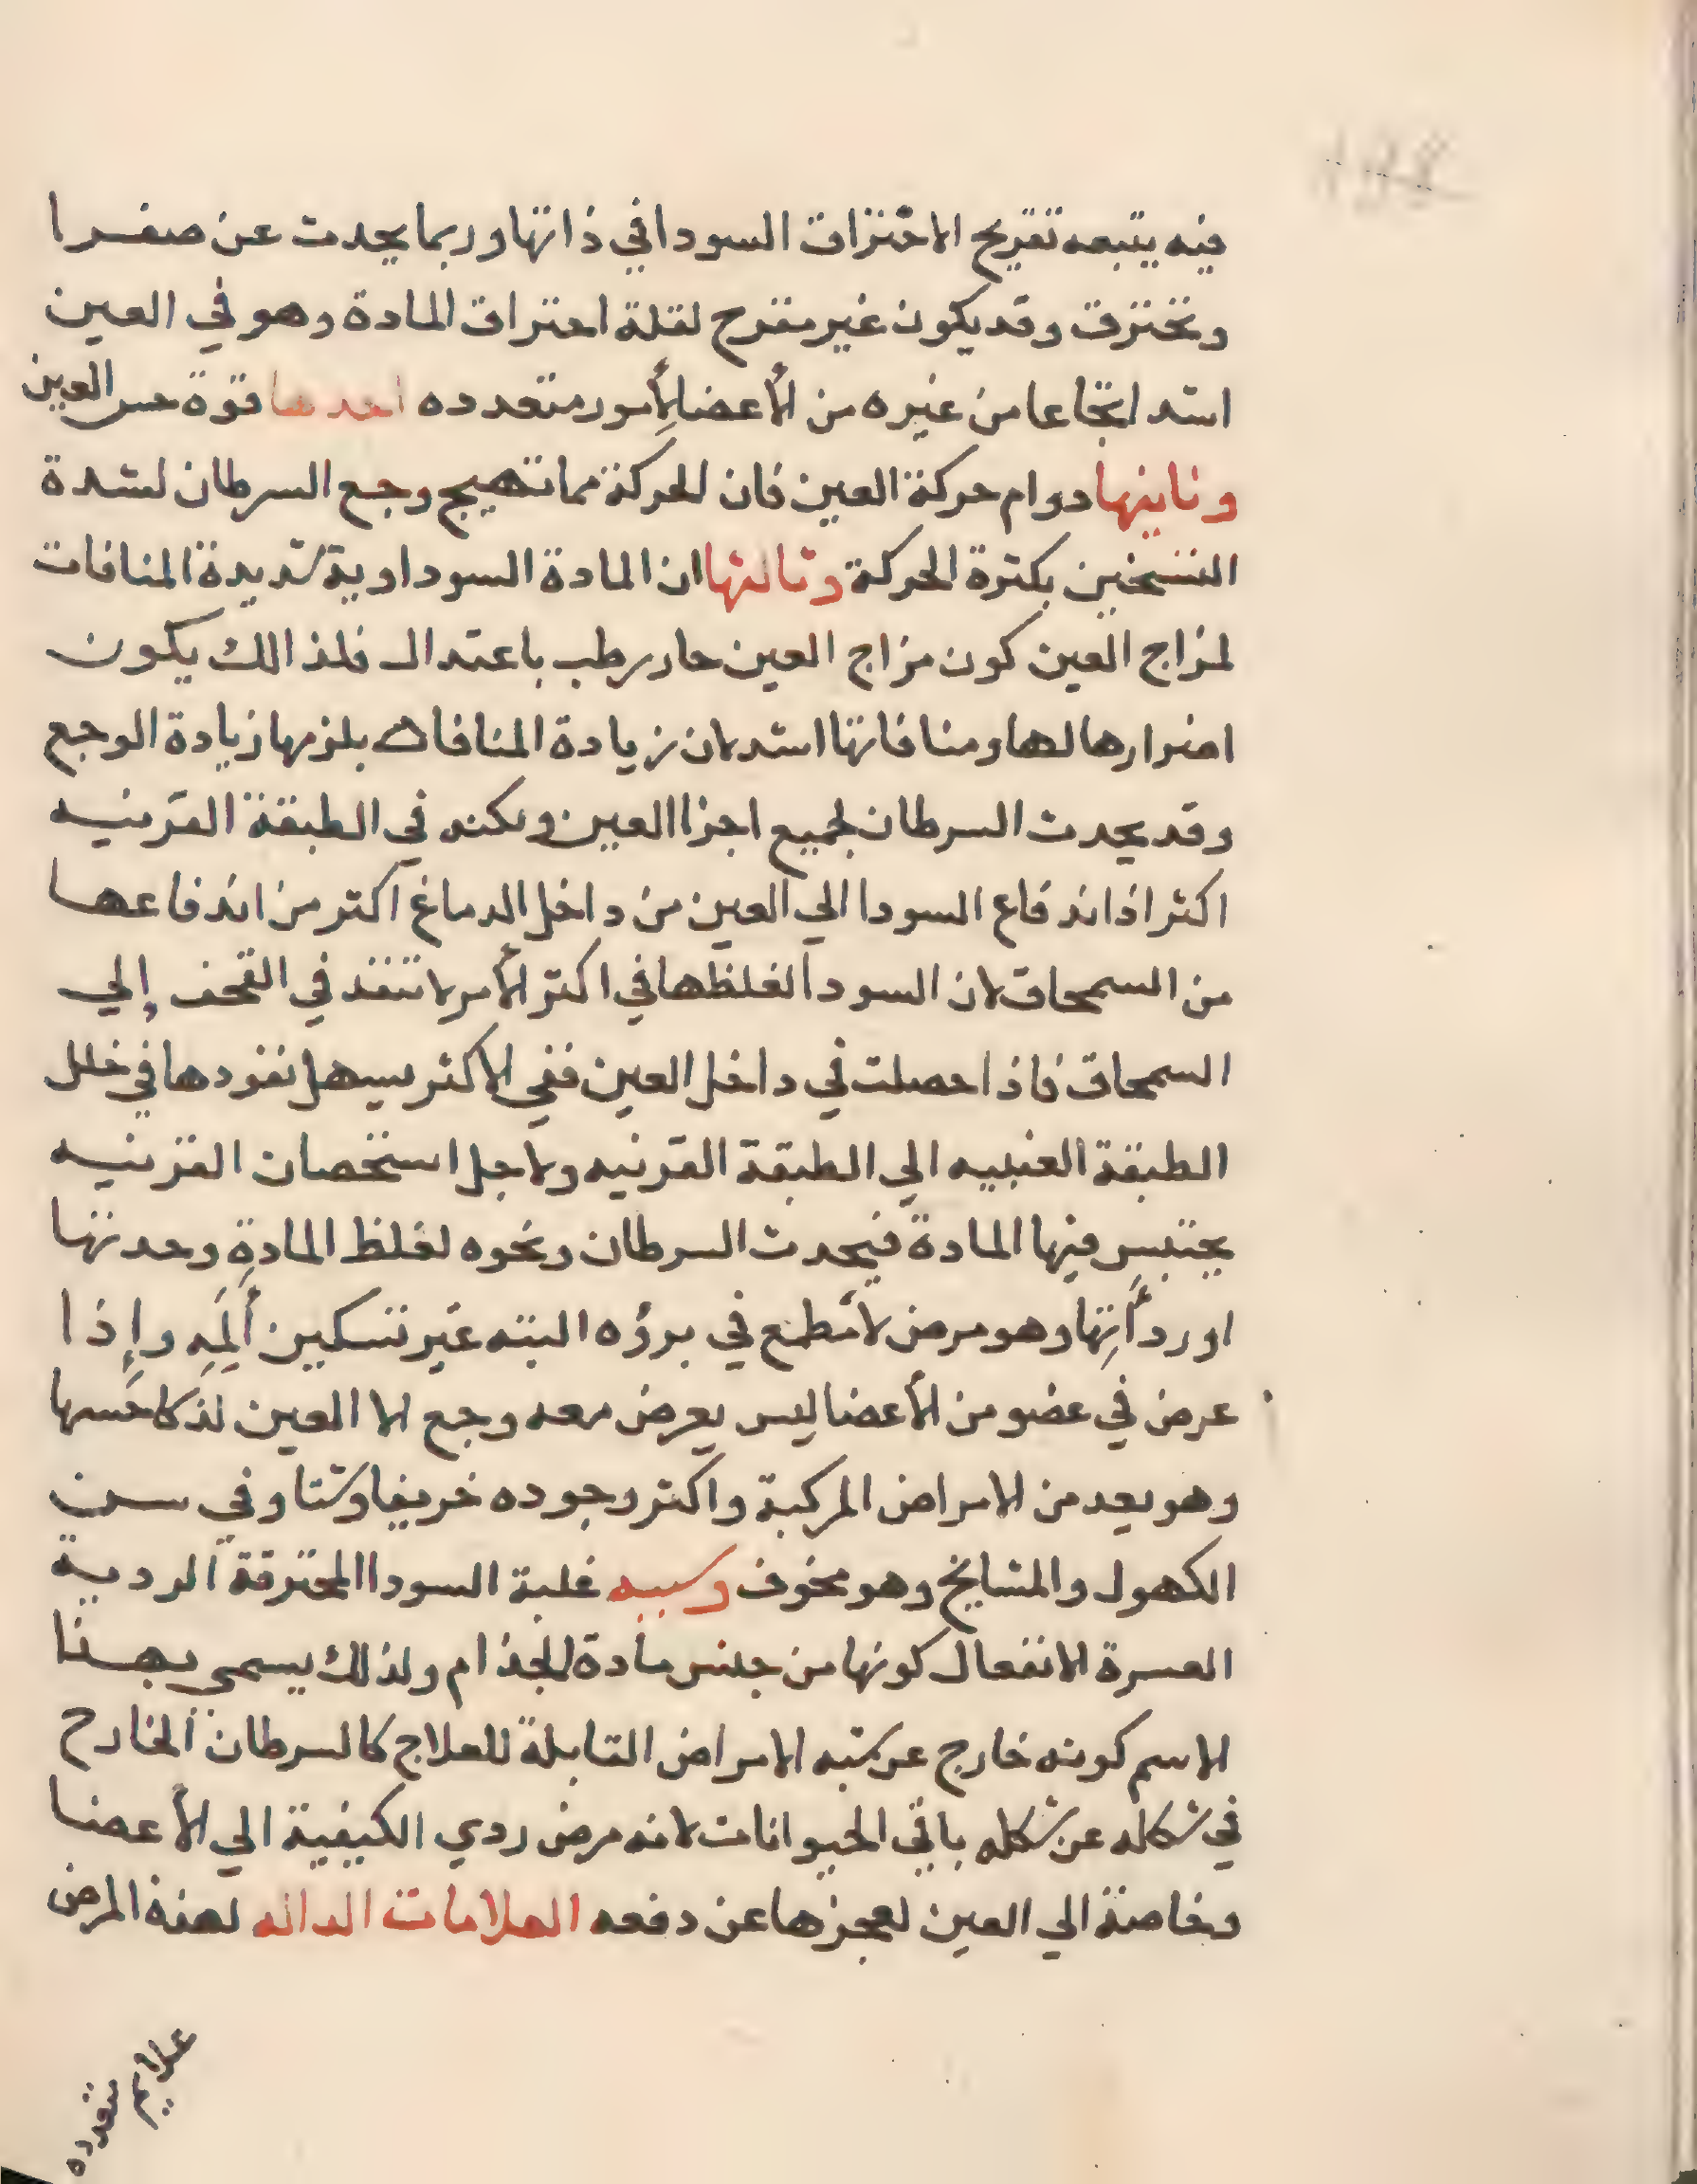 فيه يتبعه تقريح الاحتراق السودا في ذاتها وربما يحدث عن صفرا
وتحترق وقد يكون غير مقرح لقلة احتراق المادة وهو في العين
اشد ايجاعا من غيره من الأعضا لأمور متعدده احدها قوة حس العين
وثانيها دوام حركة العين فان الحركة مما تهيج وجع السرطان لشدة
التسخين بكثرة الحركة وثالثها ان المادة السوداوية شديدة المنافات
لمزاج العين كون مزاج العين حار رطب باعتدال فلذالك يكون
اضرارها لها ومنافاتها اشد لان زيادة المنافات يلزمها زيادة الوجع
وقد يحدث السرطان لجميع اجزا العين ولكنه في الطبقة القرنيه
اكثر اذ اندفاع السودا الي العين من داخل الدماغ اكثر من اندفاعها
من السمحاق لان السودا لغلظها في اكثر الأمر لا تنفذ في القحف إلي
السمحاق فاذا حصلت في داخل العين ففي الاكثر يسهل نفودها في خلل
الطبقة العنبيه الي الطبقة القرنيه ولاجل استخصان القرنيه
يحتبس فيها المادة فيحدث السرطان ونحوه لغلظ المادة وحدتها
او ردأتها وهو مرض لا مطمع في برؤه البته غير تسكين ألمه وإذا
عرض في عضو من الأعضا ليس يعرض معه وجع الا العين لذكا حسها
وهو يعد من الامراض المركبة واكثر وجوده خريفا وشتا وفي سن
الكهول والمشايخ وهو مخوف وسببه غلبة السودا المحترقة الرديه
العسرة الانفعال كونها من جنس مادة الجذام ولذلك يسمي بهذا
الاسم كونه خارج عن شبه الامراض القابلة للعلاج كالسرطان الخارج
في شكله عن شكله باقي الحيوانات لانه مرض ردي الكيفية الي الأعضا
وخاصة الي العين لعجزها عن دفعه العلامات الداله لهذه المرض
علايم